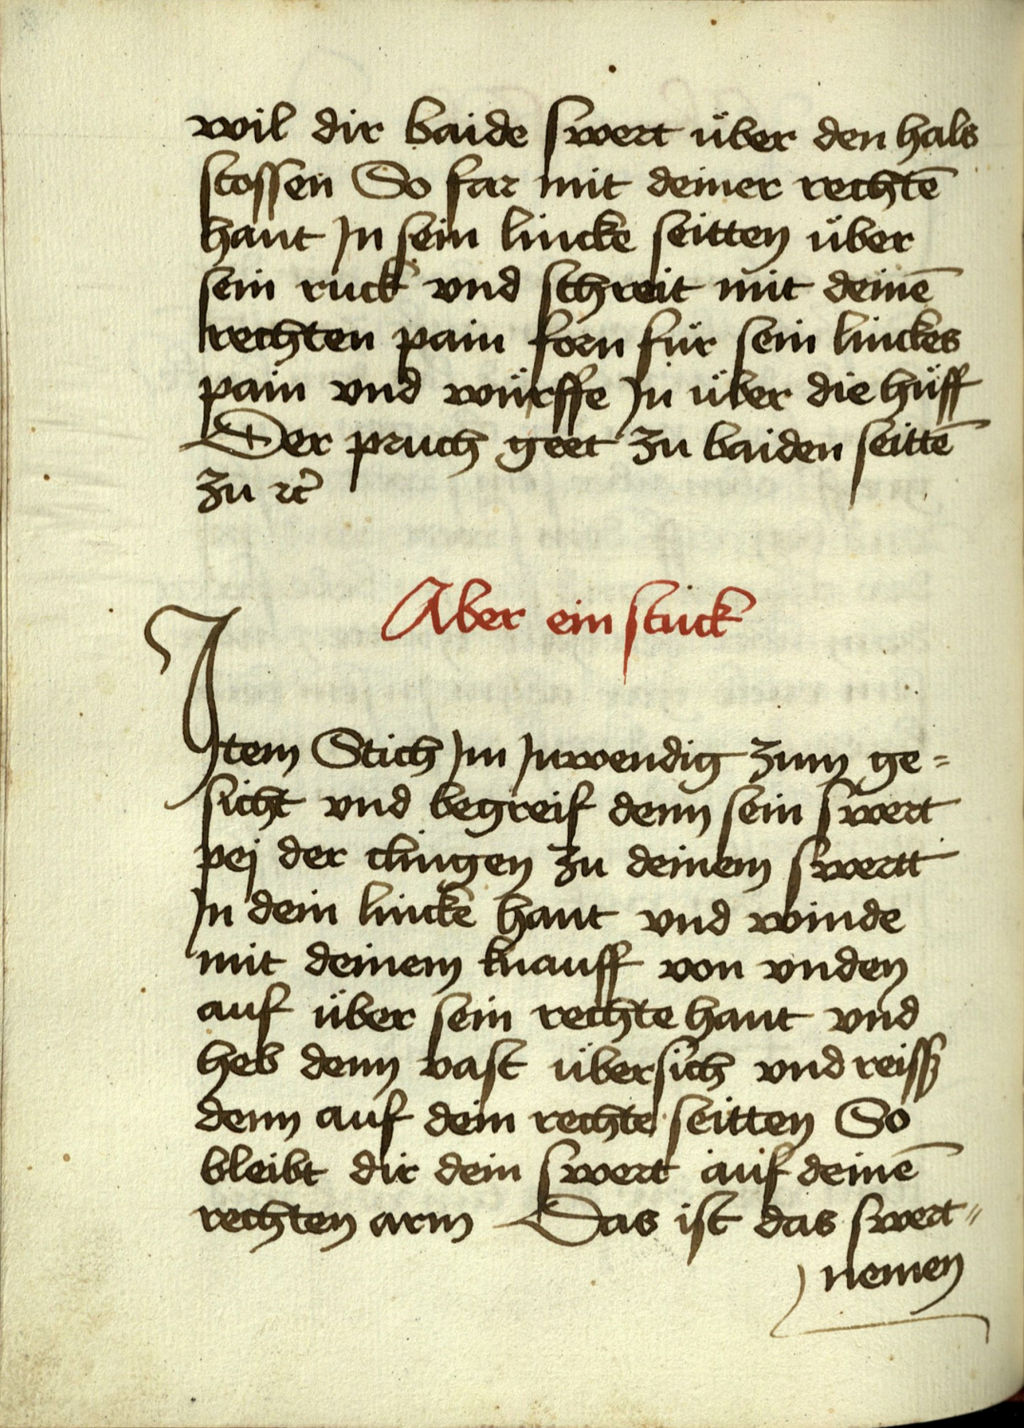 wil dir baide swert über den hals
stossen So far mit deiner rechtē
hant Jn sein lincke seitten über
sein ruck vnd schreit mit deinē
rechten pain forn für sein linckes
pain vnd würffe Jn über die hüff
Der pruch geet zu baiden seittē
zu
Aber ein stuck
Jtem Stich Jm Jnwendig zum ge=
sicht vnd begreif denn sein swert
pej der clingen zu deinem swertt
Jn dein lincke hant vnd winde
mit deinem knauff von vnden
auf über sein rechte hant vnd
heb denn vast übersich vnd reiss
denn auf dein rechte seitten So
bleibt dir dein swert auf deinē
rechten arm Das ist das swert=
nemen